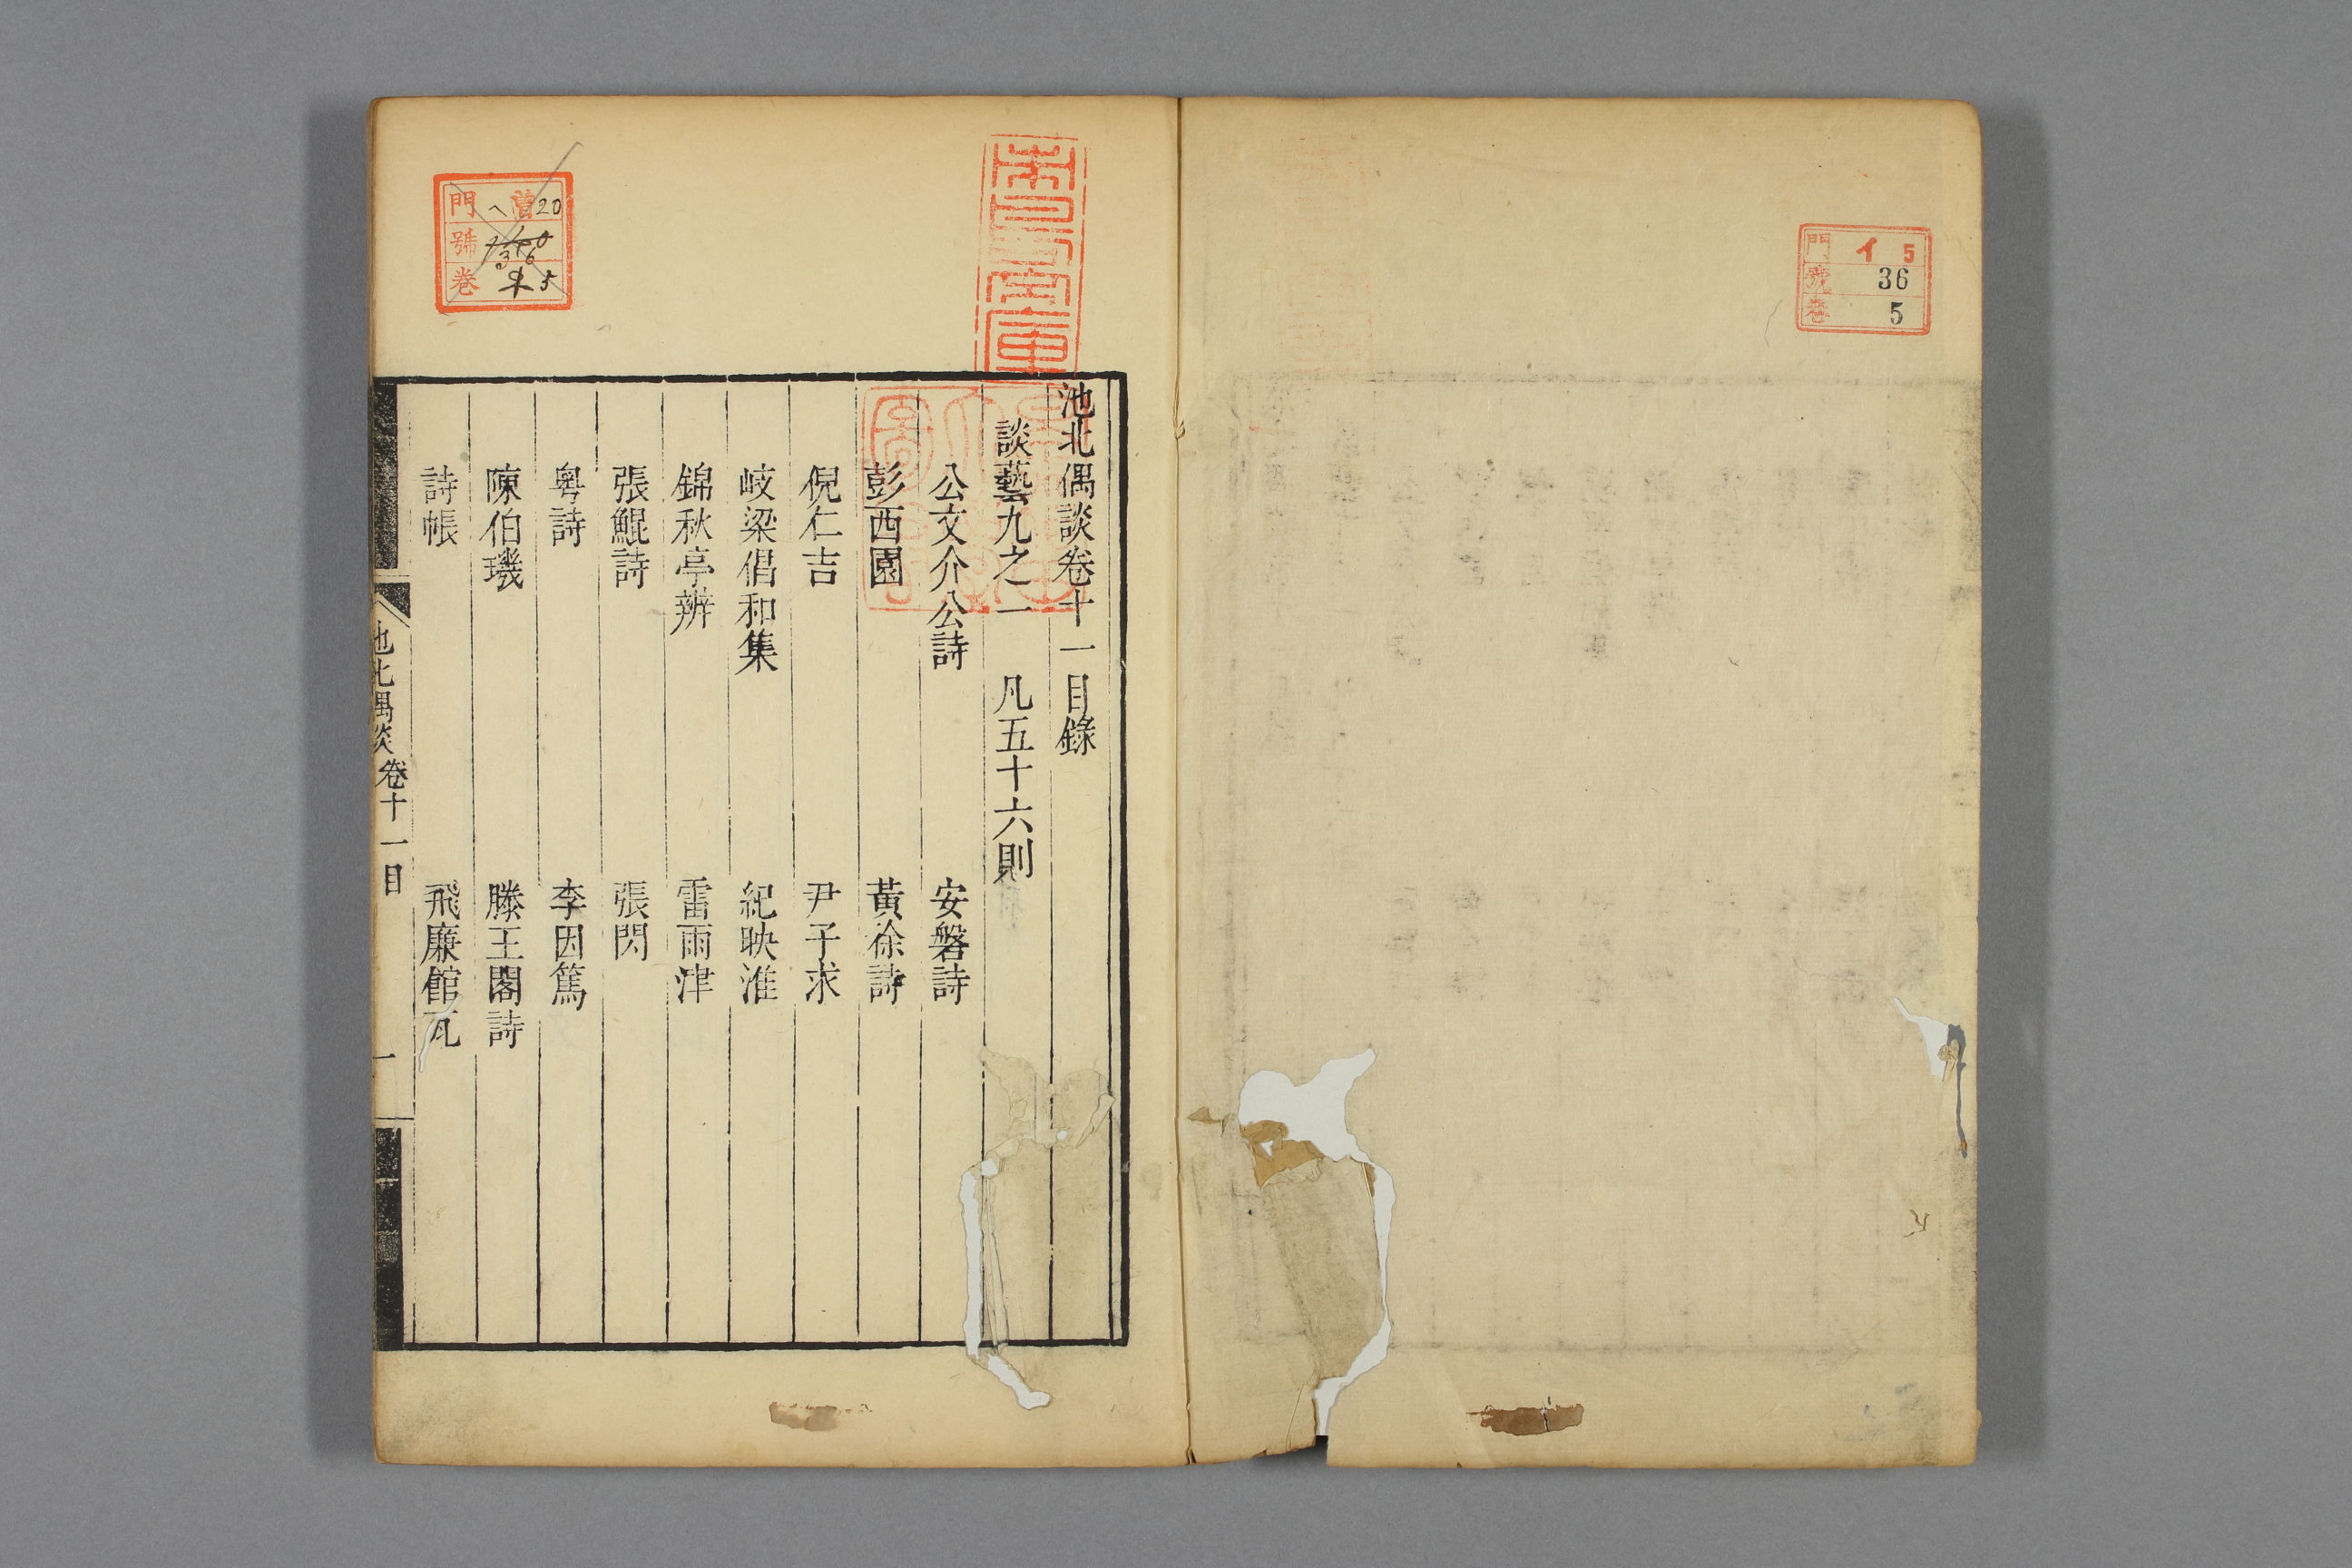 門 イ 5
號 36
卷 5
池北偶談卷十一目錄
談藝九之一 凡五十六則
公文介公詩 安磐詩
彭西園 黃徐詩
倪仁吉 尹子求
岐梁倡和集 紀映淮
錦秋亭辨 雷雨津
張鯤詩 張閃
粵詩 李因篤
陳伯璣 滕王閣詩
詩帳 飛廉館瓦
池北偶談 卷十一目 一
門 曾 20
號
卷 5